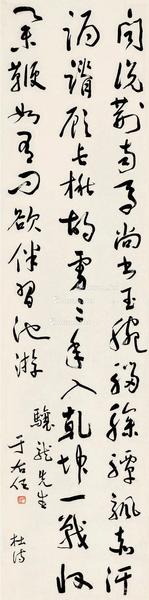 聞說荆南馬尚書玉腕騮驂驔飄赤汗
跼蹐顧長楸胡虜三年入乾坤一戰收
舉鞭如有問欲伴習池游
先生
于右任
杜詩